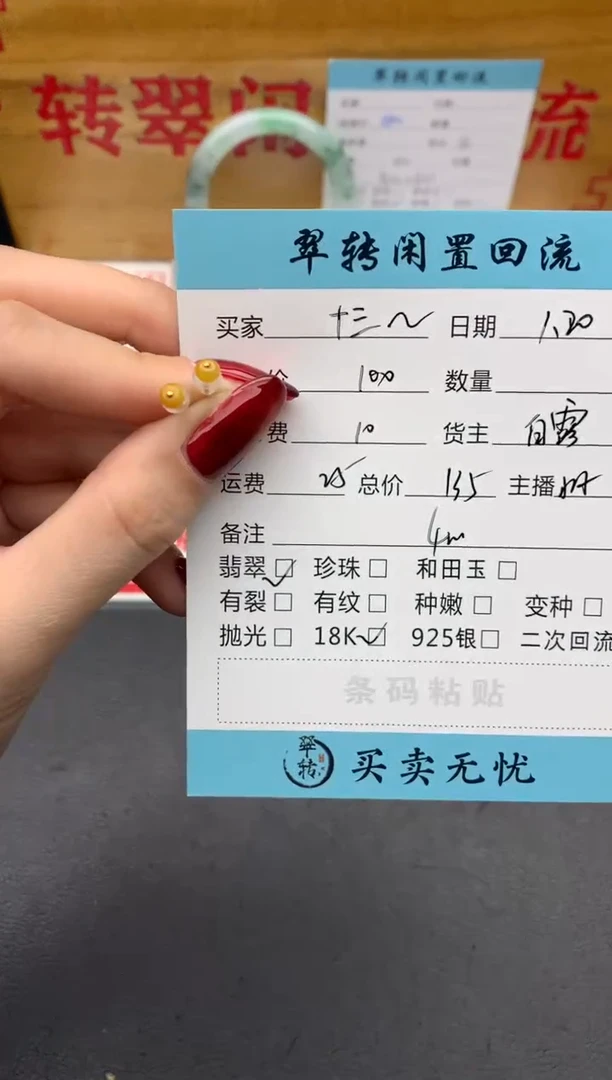 转翠闲 流
翠转闲置回流
翠转闲置回流
买家 十三~ 日期 1.20
价 100 数量
费 10 货主 白露
运费 25 总价 135 主播
备注 4m
翡翠☑ 珍珠□ 和田玉□
有裂□ 有纹□ 种嫩□ 变种□
抛光□ 18K☑ 925银□ 二次回流
条码粘贴
翠转 买卖无忧